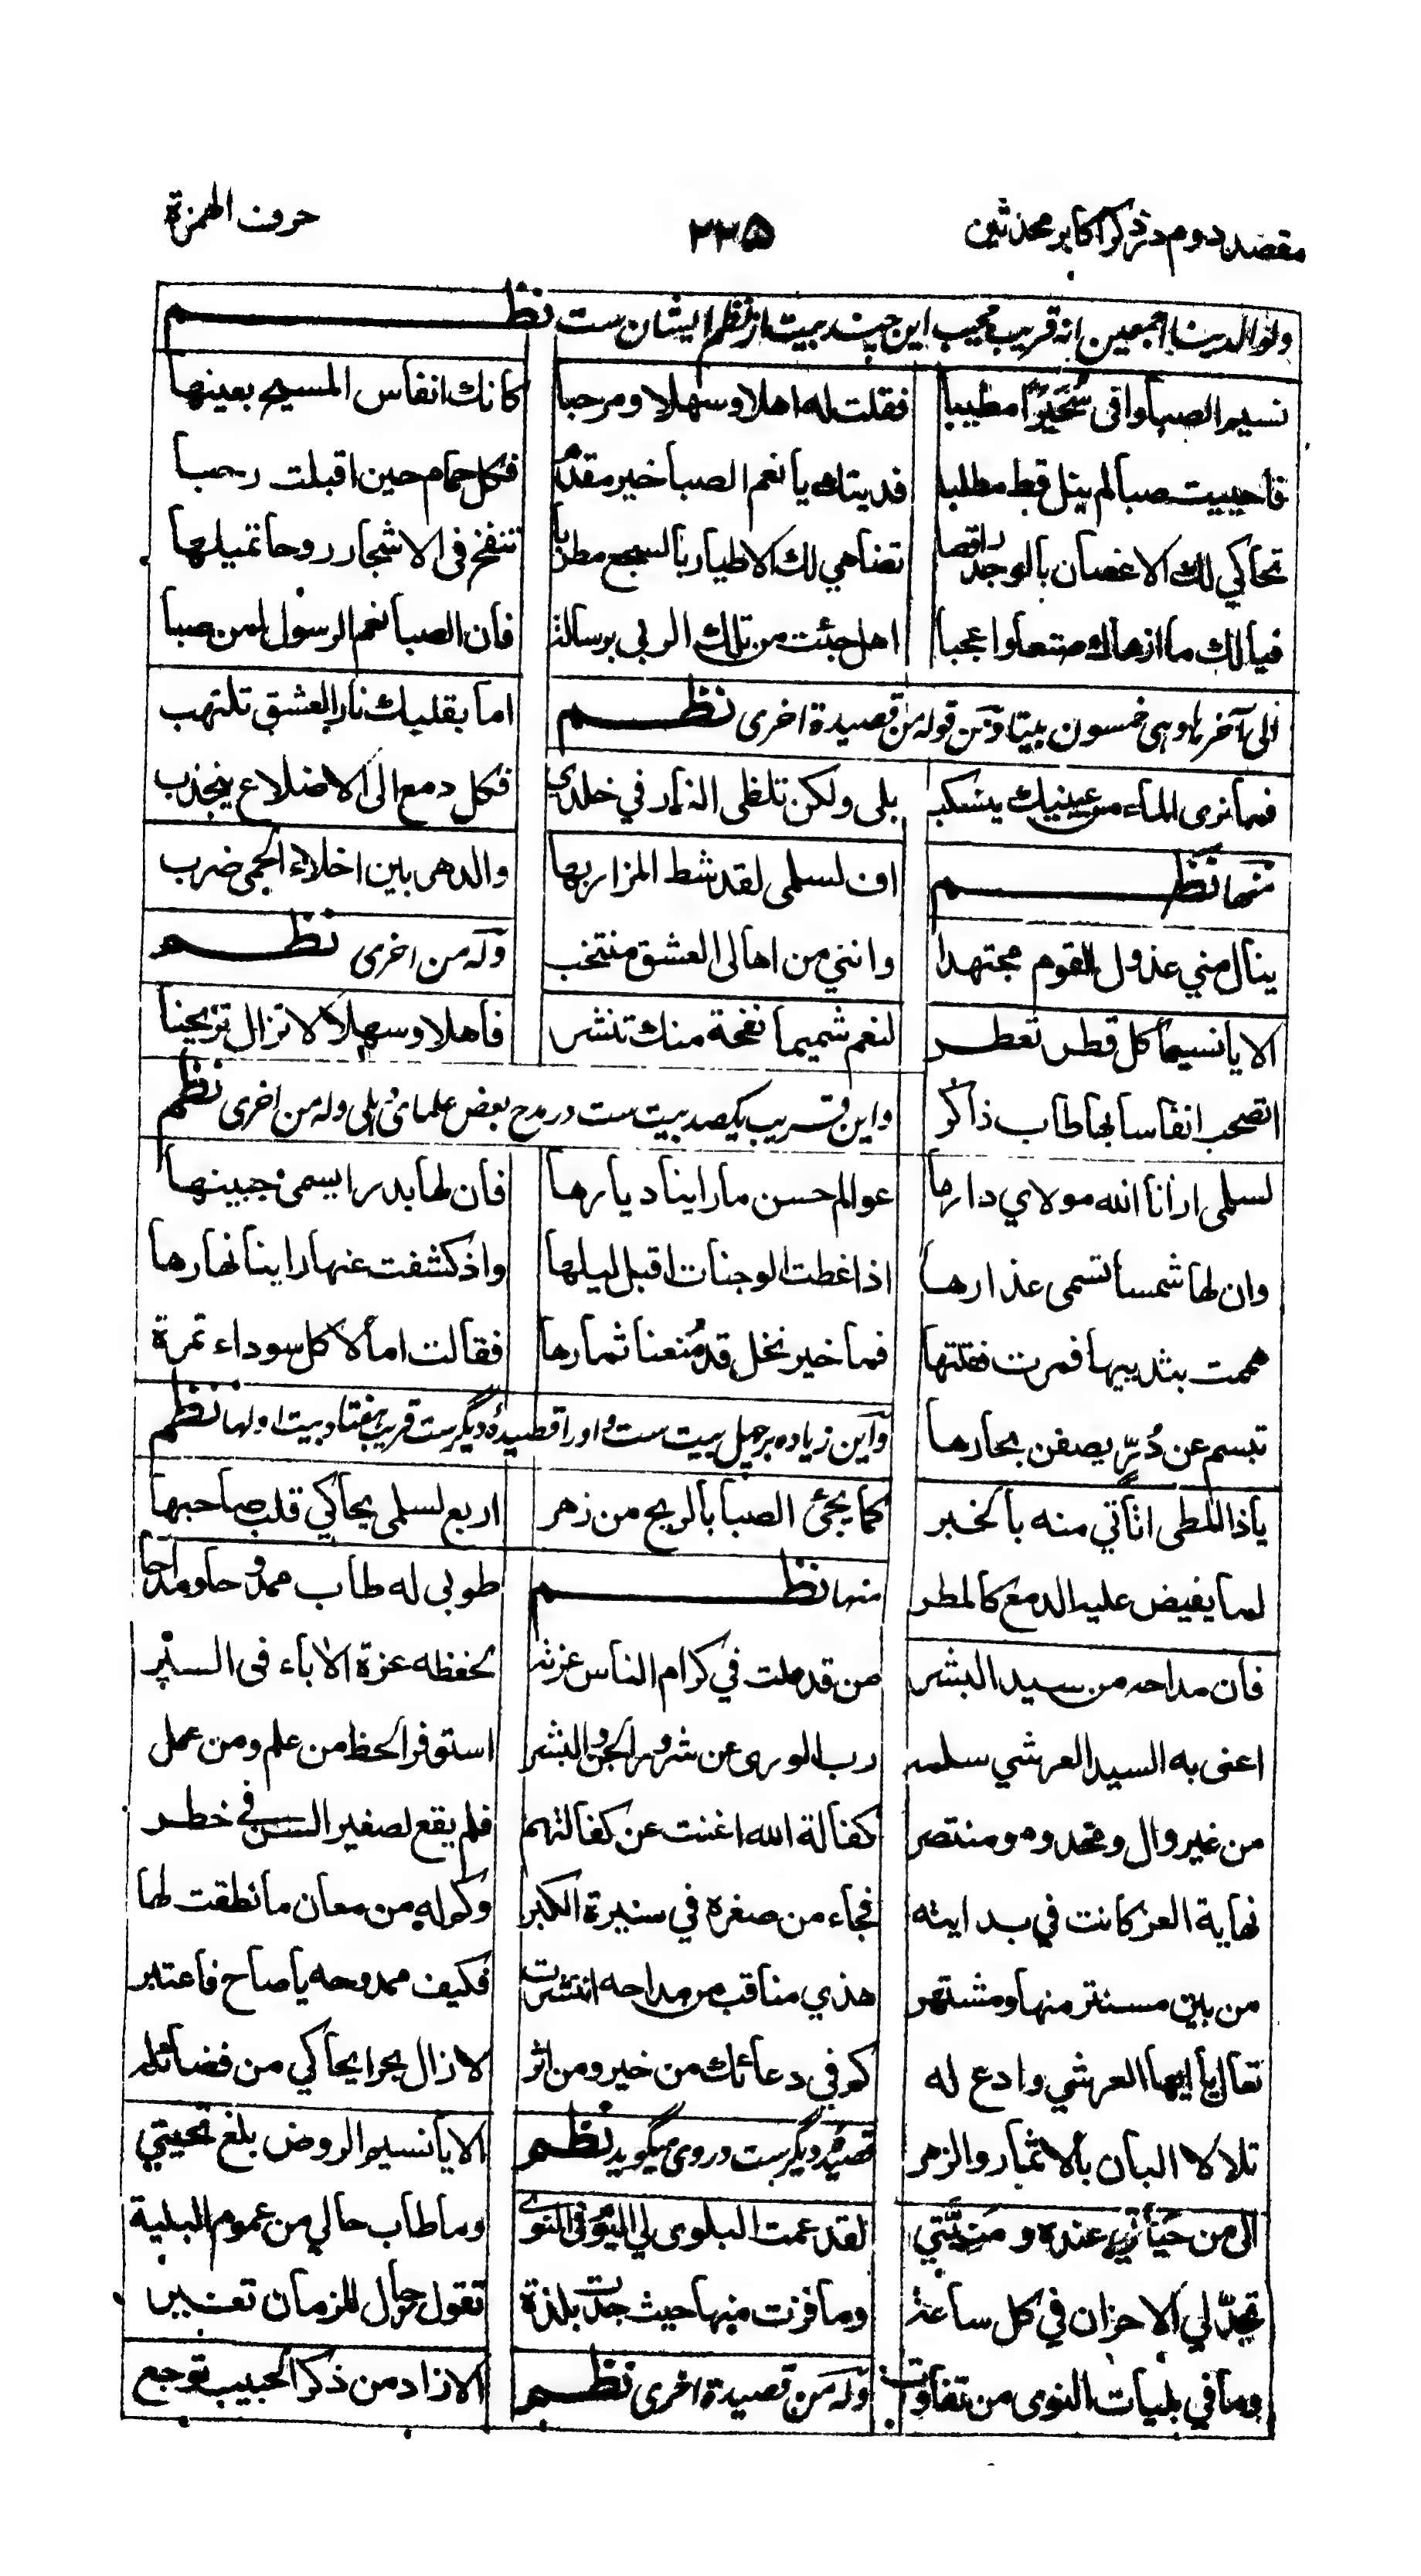 مقصد دوم در ذکر اکابر محدثین ۲۲۵ حرف الهمزة
ولوالدینا اجمعین انه قریب مجیب این چند بیت از نظم ایشان ست نظم
نسیم الصبا وافی سُحَیْرًا مطیبا فقلت له اهلا وسهلا ومرحبا کانك انفاس المسیح بعینها
فاحییت صبا لم ینل قط مطلبا فدیتك یا نعم الصبا خیر مقدم فکل حمام حین اقبلت رحبا
تحاکي لك الاغصان بالوجد راقصا تضاهي لك الاطیار بالسجع مطربا تنفخ فی الاشجار روحا تمیلها
فیا لك ما ازهاك متعا واعجبا اهل جئت من تلك الربی برسالة فان الصبا نعم الرسول لمن صبا
الی آخرها وهی خمسون بیتا ومن قوله من قصیدة اخری نظم اما بقلبك نار العشق تلتهب
فما نری الماء من عینیك ینسکب بلی ولکن تلظی النار في خلدي فکل دمع الی الاضلاع ینجذب
منها نظم اف لسلمی لقد شط المزار بها والدهر بین اخلاء الحمی ضرب
ینال مني عذول القوم مجتهدا وانني من اهالی العشق منتخب وله من اخری نظم
الا یا نسیما کل قطر تعطر لنعم شمیما نفحة منك تنشر فاهلا وسهلا لا تزال تریحنا
اتصحب انفاسا بها طاب ذاکر واین قریب یکصد بیت ست در مدح بعض علمای دهلی وله من اخری نظم
لسلمی ارانا الله مولاي دارها عوالم حسن ما راینا دیارها فان لها بدرا یسمی جبینها
وان لها شمسا تسمی عذارها اذا غطت الوجنات اقبل لیلها واذ کشفت عنها راینا نهارها
هممت بثدییها فمرت فقلتها فما خیر نخل قد مُنعنا ثمارها فقالت اما لا کل سوداء تمرة
تبسم عن دُرّ یصفن بحارها واین زیاده بر چهل بیت ست و او را قصیدۀ دیگر ست قریب هفتاد بیت اولها نظم
یا ذا اللظی اناتي منه بالخبر کما یجئ الصبا بالریح من زهر اربع لسلمی یحاکي قلب صاحبها
لما یفیض علیه الدمع کالمطر منها نظم طوبی له طاب ممدوحا ومداحا
فان مداحه من سید البشر من قد ملت في کرام الناس عزته یحفظه عزة الاباء فی الستر
اعنی به السید العرشي سلمه رب الوری عن شرور الجن والبشر استوفر الحظ من علم ومن عمل
من غیر وال ومخدوم ومنتصر کفالة الله اغنت عن کفالتهم فلم یقع لصغیر السن في خطر
نهایة العز کانت في بدایته فجاء من صغره في سنیرة الکبر وکم له من معان ما نطقت لها
من بین مستتر منها ومشتهر هذي مناقب من مداحه انتشرت فکیف ممدوحه یا صاح فاعتبر
تعال یا ایها العرشي وادع له کم في دعائك من خیر ومن اثر لا زال بحرا یحاکي من فضائله
تلالا البان بالاثمار والزهر قصیده دیگر ست در وی میگوید نظم الا یا نسیم الروض بلغ تحیتي
الی من حیاتي عنده ومنیّتي لقد عمت البلوی لي الیوم فی النوی وما طاب حالي من عموم البلیة
تجدّ لي الاحزان في کل ساعة وما فزت منها حیث جدت بلذة تقول رجال للزمان تغیر
وما في بلیات النوی من تفاوت وله من قصیدة اخری نظم الا زاد من ذکر الحبیب توجع